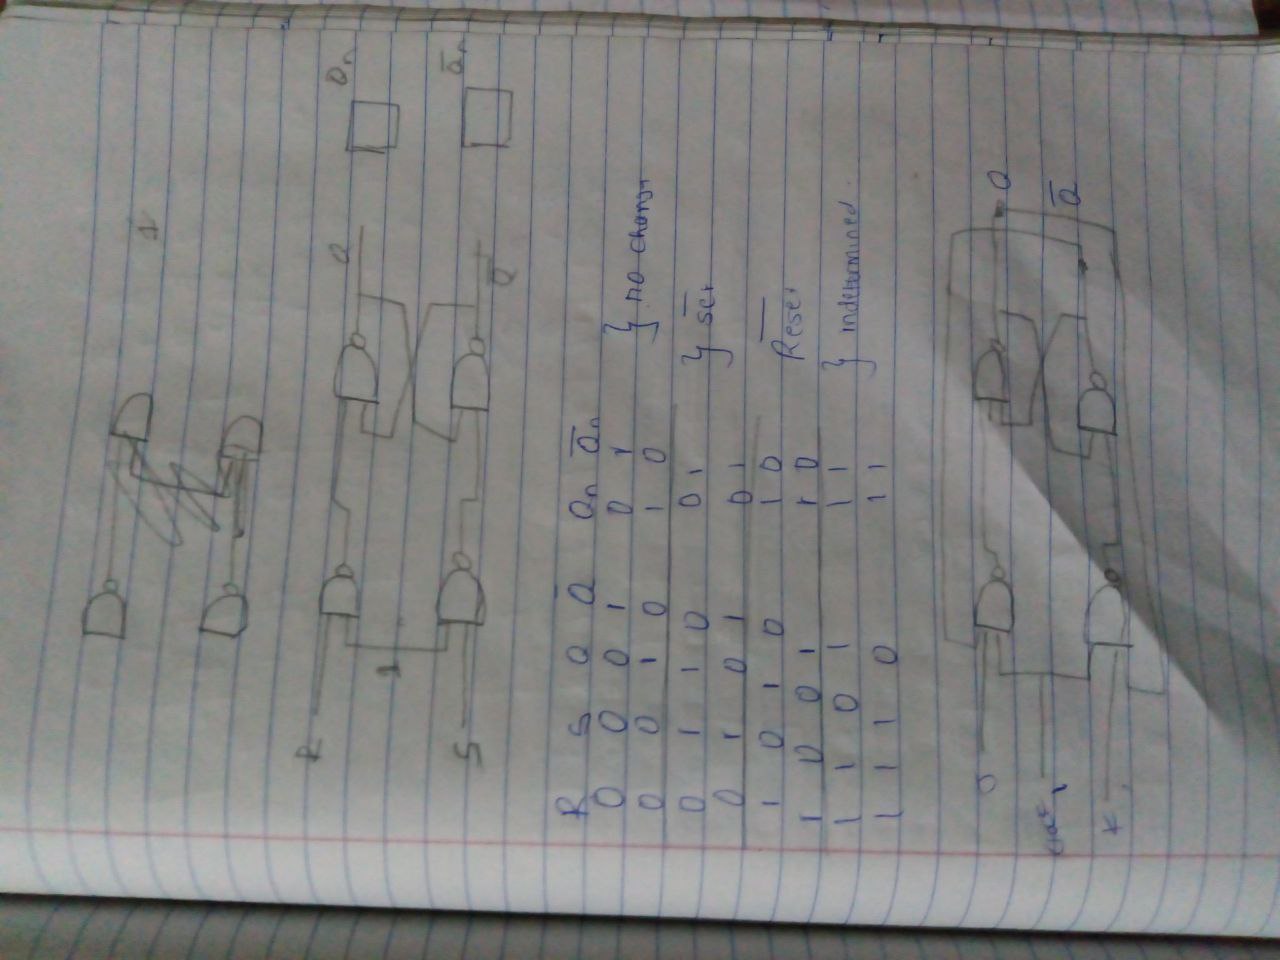 1
R
Q
Qn
1
S
Q̅
Q̅n
R S Q Q̅ Qn Q̅n
0 0 0 1 0 1 } no change
0 0 1 0 1 0
0 1 1 0 0 1 } S̅e̅t̅
0 1 0 1 0 1
1 0 1 0 1 0 R̅e̅s̅e̅t̅
1 0 0 1 1 0
1 1 0 1 1 1 } indetermined
1 1 1 0 1 1
J
Q
1
Q̅
K